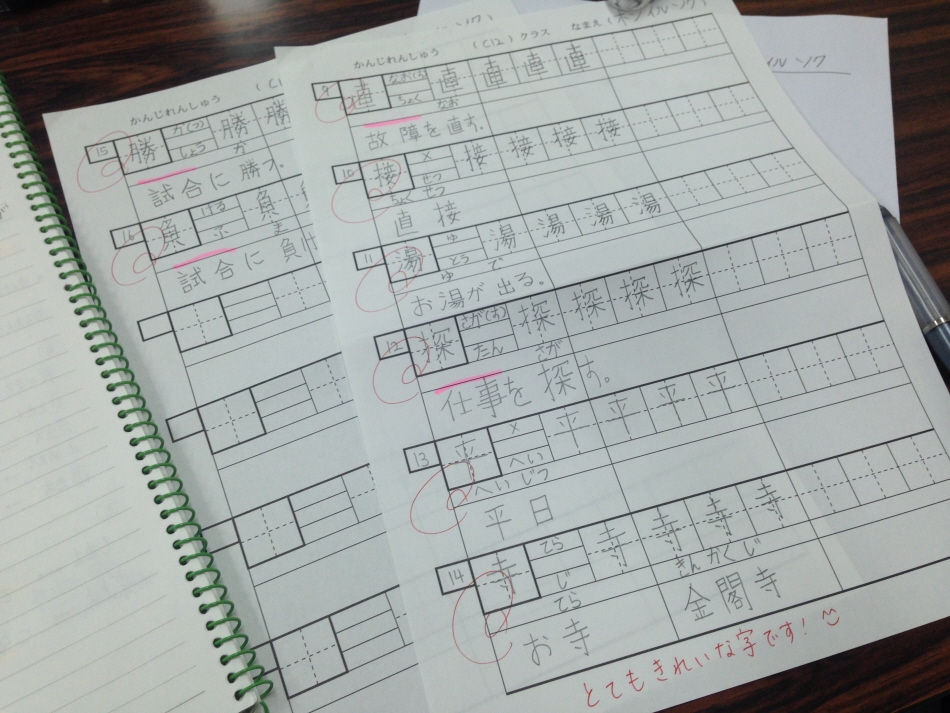 かんじれんしゅう (C12)クラス なまえ(
9 直 なお(る) ちょく 直 直 直 直
なお
故障を直す。
10 接 × せつ 接 接 接 接
ちょくせつ
直接
11 湯 ゆ とう 湯 湯 湯 湯
ゆ で
お湯が出る。
12 探 さが(す) たん 探 探 探 探
さが
仕事を探す。
13 平 × へい 平 平 平 平
へいじつ
平日
14 寺 てら じ 寺 寺 寺 寺
てら きんかくじ
お寺 金閣寺
とてもきれいな字です!
かんじれんしゅう (C1
15 勝 か(つ) しょう 勝 勝
か
試合に勝つ。
16 負 ける ふ 負
ま
試合に負け